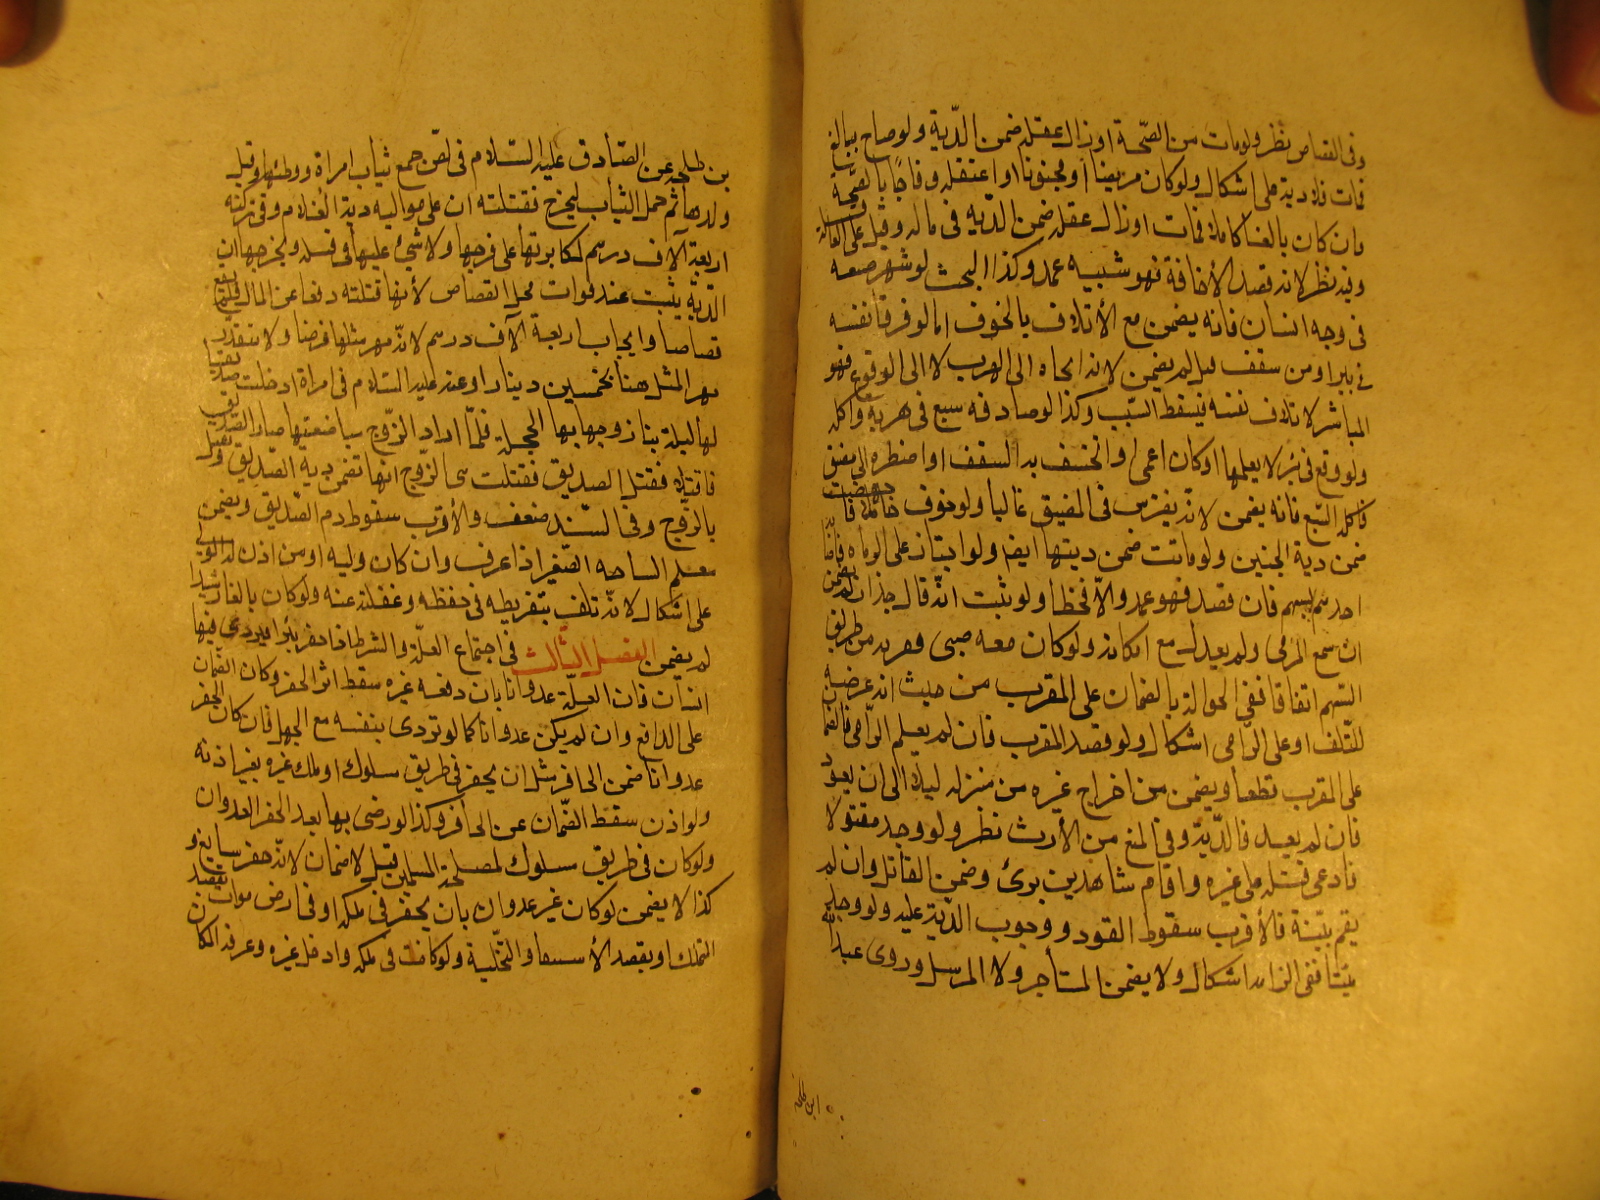 وفى القصاص نظر ولو مات من الصّحة او زال عقله ضمن الدّية ولو صاح ببالغ
فمات فلا دية على اشكال ولو كان مريضا او مجنونا او اغتفله وفاجأ بالصّيحة
وان كان بالغا كاملا فمات او زال عقله ضمن الدّيه فى ماله وقيل على العاقلة
وفيه نظر لانه قصد الأخافة فهو شبيه عمد وكذا البحث لو شهر سيفه
فى وجه انسان فانه يضمن مع الأتلاف بالخوف اما لو فر فالقى نفسه
فى بئر او من سقف قيل لم يضمن لانه الجاه الى الهرب لا الى الوقوع فهو
المباشر لاتلاف نفسه فيسقط السّبب وكذا لو صادفه سبع فى هربه واكله
ولو وقع فى بئر لا يعلمها او كان اعمى او انخسف به السقف او اضطره الى مضيق
فاكله السّبع فانه يضمن لانه يفترس فى المضيق غالبا ولو خوف حاملا فاجهضت
ضمن دية الجنين ولو ماتت ضمن ديتها ايض ولو ابتنا على لو رماه فاصابه
احدهم بسهم فان قصد فهو عمد والّا فخطا ولو ثبت انّه قال حذار لم يضمن
ان سمع المرمى ولم يعدل مع امكانه ولو كان معه صبى فقربه من طريق
السّهم اتفاقا ففى الحوالة بالضمان على المقرب من حيث انه عرضه
للتّلف او على الرّامى اشكال ولو قصد المقرب فان لم يعلم الرّامى فالضّمان
على المقرب قطعا ويضمن من اخراج غيره من منزله ليلا الى ان يعود
فان لم يعد فالدّية وفى المنع من الأرث نظر ولو وجد مقتولا
فادعى قتله على غيره واقام شاهدين برئ وضمن القاتل وان لم
يقم بيّنة فالأقرب سقوط القود ووجوب الدّية عليه ولو وجد
ميّتا ففى الزامه اشكال ولا يضمن المستأجر ولا المرسل وروى عبد الله
ابن طلحه
بن طلحه عن الصّادق عليه السّلام فى لصّ جمع ثياب امراة ووطئها وقتل
ولدها ثم حمل الثياب ليخرج فقتلته ان على مواليه دية الغلام وفى تركته
اربعة آلاف درهم لمكابرتها على فرجها ولا شئ عليها فى قتله ولم يخرجها ان
الدّية يثبت عند فوات محل القصاص لأنها قتلته دفعا عن المال فلم يقع
قصاصا وايجاب اربعة آلاف درهم لانّه مهر مثلها فرضا ولا يتقدر
مهر المثل هنا بخمسين دينارا وعنه عليه السّلام فى امراة ادخلت صديقا
لها ليلة بنا زوجها بها الحجلة فلمّا اراد الزّوج مباضعتها صار الصّديق
فاقتتلا فقتل الصديق فقتلت هى الزّوج انها تضمن دية الصّديق وتقتل
بالزّوج وفى السّند ضعف والأقرب سقوط دم الصّديق ويضمن
معلم السباحه الصّغير اذا غرق وان كان وليه او من اذن له الولى
على اشكال لانّه تلف بتفريطه فى حفظه وغفلته عنه ولو كان بالغا رشيدا
لم يضمن الفصل الثالث فى اجتماع العلّة والشرط اذا حفر بئرا فيردى فيها
انسان فان العلّة عدوانا بان دفعه غيره سقط اثر الحفر وكان الضّمان
على الدافع وان لم يكن عدوانا كما لو تردى بنفسه مع الجهل فان كان الحفر
عدوانا ضمن الحافر مثل ان يحفر فى طريق مسلوك او ملك غيره بغير اذنه
ولو اذن سقط الضّمان عن الحافر وكذا لو رضى بها بعد الحفر العدوان
ولو كان فى طريق مسلوك لمصلحة المسلمين قيل لا ضمان لانّه حفر سايغ و
كذا لا يضمن لو كان غير عدوان بان يحفر فى ملكه او فى ارض موات بقصد
التملك او بقصد الأستسقا والتّخلية ولو كانت فى ملكه وادخل غيره وعرفه المكان